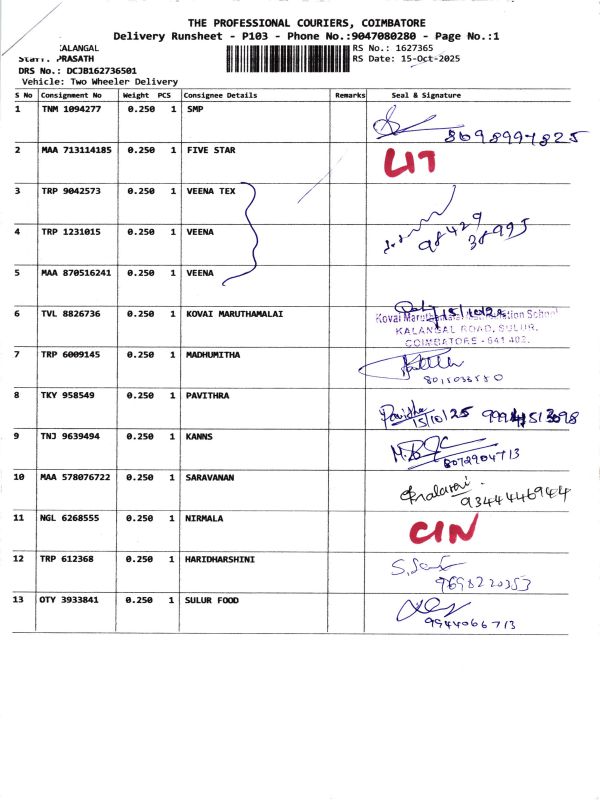 THE PROFESSIONAL COURIERS, COIMBATORE
Delivery Runsheet - P103 - Phone No.:9047080280 - Page No.:1
KALANGAL RS No.: 1627365
Staff: PRASATH RS Date: 15-Oct-2025
DRS No.: DCJB162736501
Vehicle: Two Wheeler Delivery
S No Consignment No Weight PCS Consignee Details Remarks Seal & Signature
1 TNM 1094277 0.250 1 SMP
8698997825
2 MAA 713114185 0.250 1 FIVE STAR LIT
3 TRP 9042573 0.250 1 VEENA TEX
4 TRP 1231015 0.250 1 VEENA 98429
38995
5 MAA 870516241 0.250 1 VEENA
6 TVL 8826736 0.250 1 KOVAI MARUTHAMALAI 15/10/25
KALANGAL ROAD, SULUR,
COIMBATORE - 641 402.
7 TRP 6009145 0.250 1 MADHUMITHA
8 TKY 958549 0.250 1 PAVITHRA Pavithra
15/10/25
9 TNJ 9639494 0.250 1 KANNS
8072904713
10 MAA 578076722 0.250 1 SARAVANAN
9344446944
11 NGL 6268555 0.250 1 NIRMALA CIN
12 TRP 612368 0.250 1 HARIDHARSHINI
9698220353
13 OTY 3933841 0.250 1 SULUR FOOD
9944066713